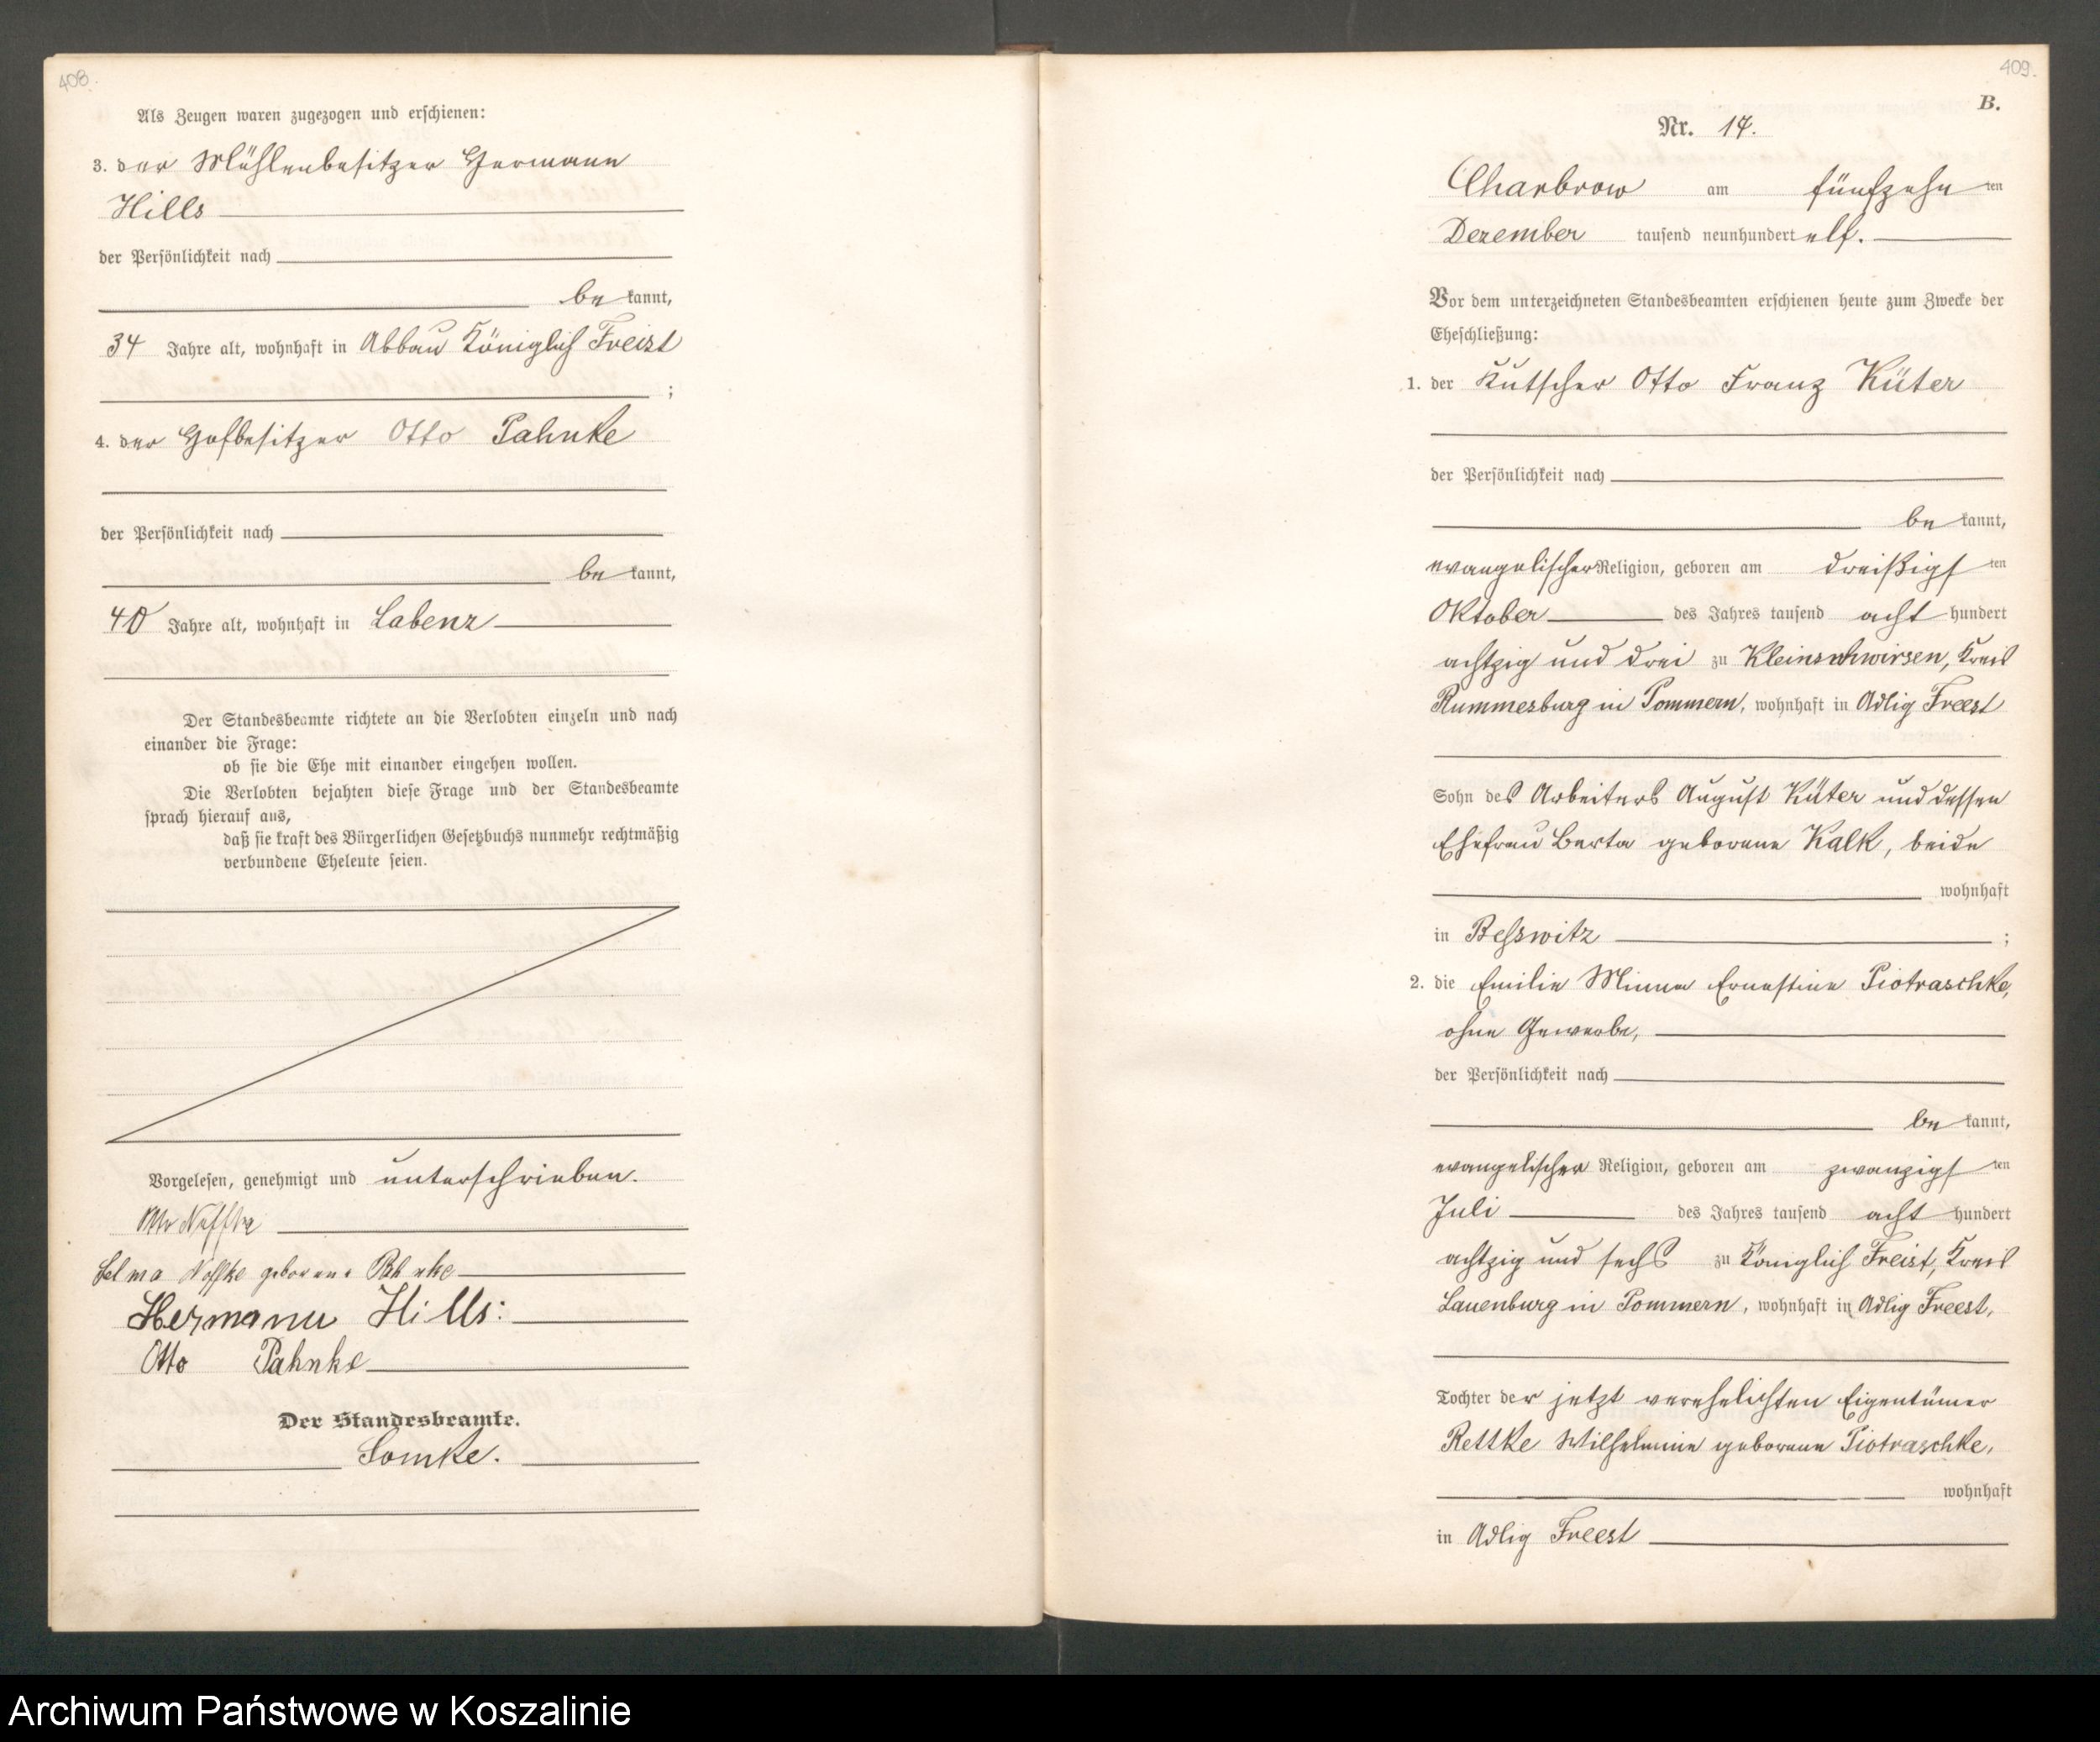 408.
Als Zeugen waren zugezogen und erschienen:
3. der Mühlenbesitzer Hermann
Hills
der Persönlichkeit nach
be kannt,
34 Jahre alt, wohnhaft in Abbau Königlich Freist
;
4. der Hofbesitzer Otto Pahnke
der Persönlichkeit nach
be kannt,
40 Jahre alt, wohnhaft in Labenz
Der Standesbeamte richtete an die Verlobten einzeln und nach
einander die Frage:
ob sie die Ehe mit einander eingehen wollen.
Die Verlobten bejahten diese Frage und der Standesbeamte
sprach hierauf aus,
daß sie kraft des Bürgerlichen Gesetzbuchs nunmehr rechtmäßig
verbundene Eheleute seien.
Vorgelesen, genehmigt und unterschrieben.
Otto
Selma geborene
Hermann Hills:
Otto Pahnke
Der Standesbeamte.
409.
B.
Nr. 17.
Charbrow am fünfzehn ten
Dezember tausend neunhundert elf.
Vor dem unterzeichneten Standesbeamten erschienen heute zum Zwecke der
Eheschließung:
1. der Kutscher Otto Franz Küter
der Persönlichkeit nach
be kannt,
evangelischer Religion, geboren am dreißigs ten
Oktober des Jahres tausend acht hundert
achtzig und drei zu Kleinschwirsen, Kreis
Rummesburg in Pommern, wohnhaft in Adlig Freest
Sohn des Arbeiters August Küter und dessen
Ehefrau Berta geborene Kalk, beide
wohnhaft
in Besswitz ;
2. die Emilie Minna Ernestine Piotraschke,
ohne Gewerbe,
der Persönlichkeit nach
be kannt,
evangelischer Religion, geboren am zwanzigs ten
Juli des Jahres tausend acht hundert
achtzig und sechs zu Königlich Freist, Kreis
Lauenburg in Pommern, wohnhaft in Adlig Freest,
Tochter der jetzt verehelichten Eigentümer
Rettke Wilhelmine geborene Piotraschke,
wohnhaft
in Adlig Freest
Archiwum Państwowe w Koszalinie